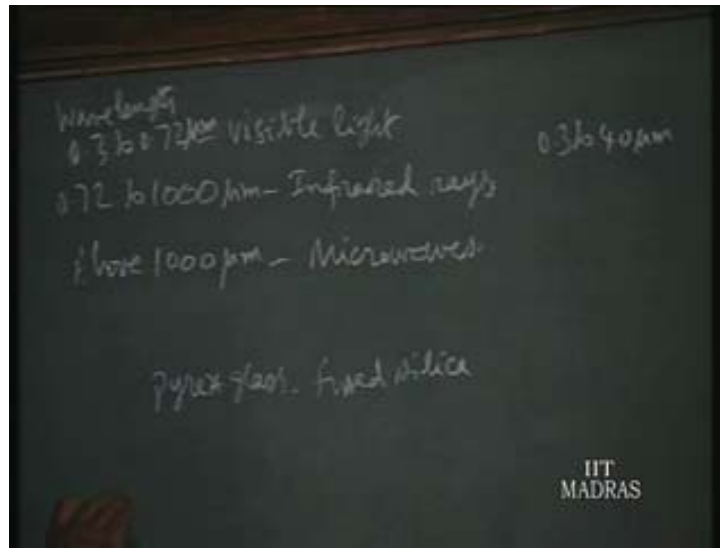 Wavelength
0.3 to 0.72 μm visible light
0.3 to 40 μm
0.72 to 1000 μm - Infrared rays
Above 1000 μm - Microwaves.
Pyrex glass. fused silica
IIT
MADRAS